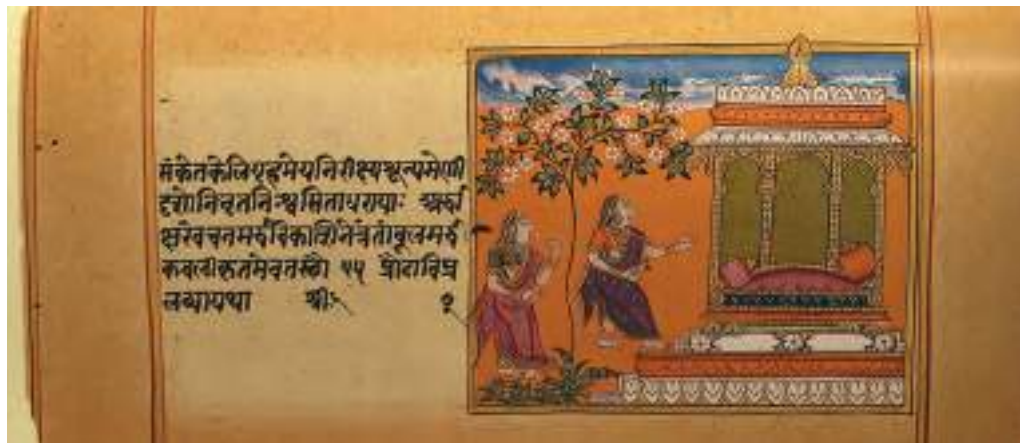 संकेतकेलिगृहमेत्यनिरीक्ष्यशून्यमेणी
दृशोनिभृतनिःश्वसिताधरायाः अर्द्धा
क्षरंवचनमर्द्धविकाशिनेत्रंतांबूलमर्द्ध
कवलीकृतमेवतस्थौ ५५ प्रौढाविप्र
लब्धायथा श्रीः १